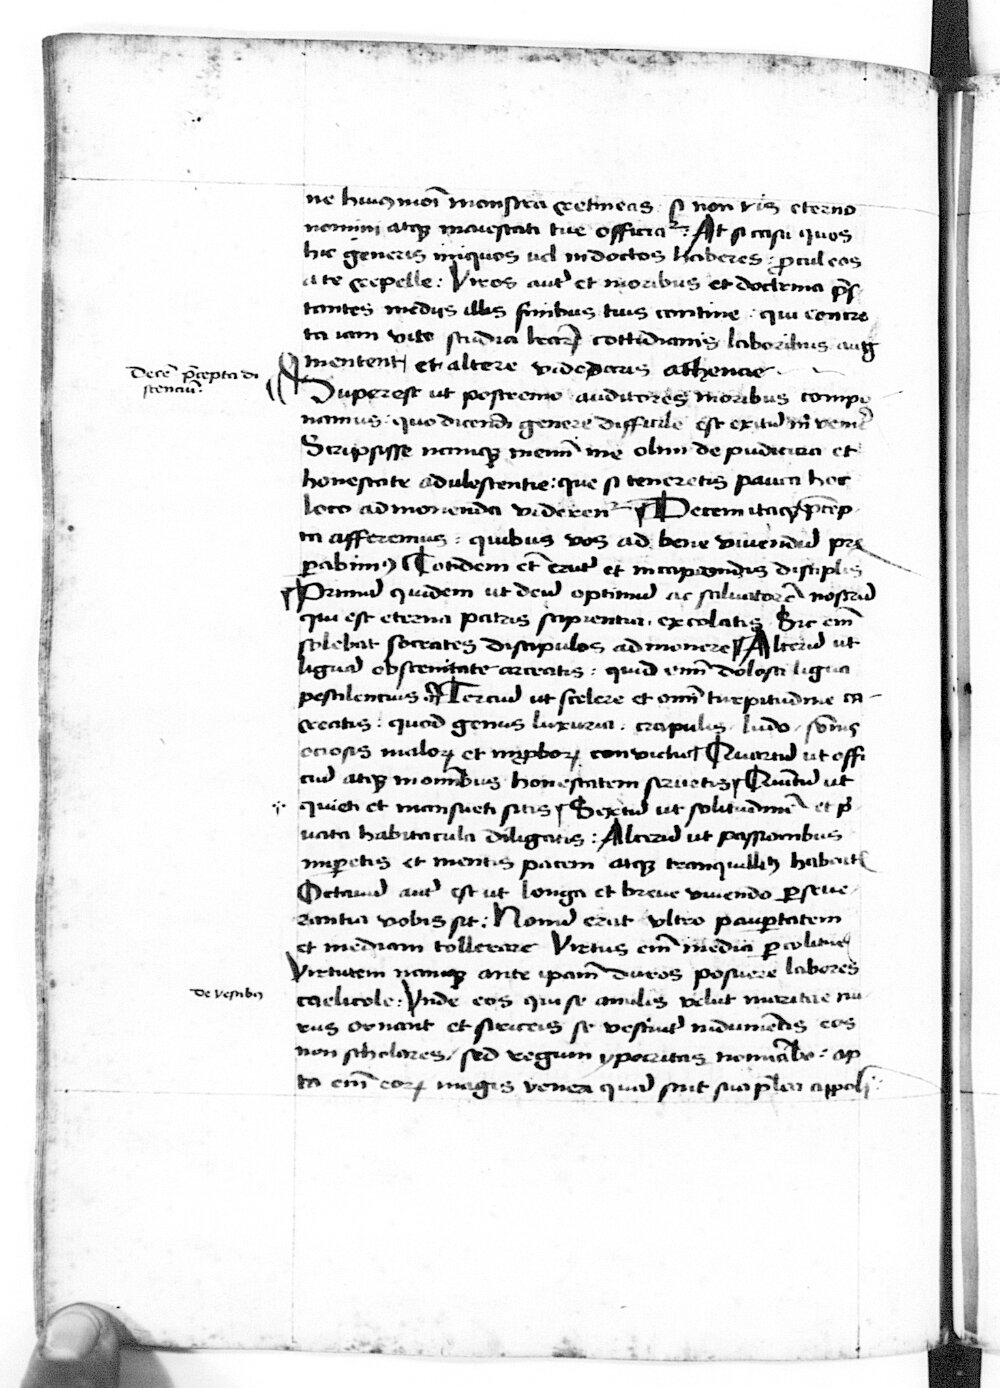 ne huiusmoi monstra retineas si non vis eterno
nomini atq maiestati tue officia At si casu quos
hic generis iniquos uel indoctos haberes : procul eos
a te repelle : Viros aut et moribus et doctrina pres
tantes medijs illis finibus tuis contine : qui
ta iam vite studia cottidianis laboribus aug
mentent et altere videaris athenae
Decē p̄cepta di
stenciū
Superest ut postremo auditores moribus compo
namus : quo dicendi genere difficile est exitū inveniē
Scripsisse namq memini me olim de pudicicia et
honestate adulescentie : que si teneretis pauca hoc
loco admonenda viderent Decem itaq precep
ta afferemus : quibus vos ad bene vivendū pre
parabimus Totidem et erūt et in capiendis disciplis
Primū quidem ut deū optimū ac saluatorē nostrū
qui est eterna patris sapientia excolatis Sic em̄
solebat socrates discipulos admonere Alterū ut
liguā obscenitate arceatis : quid enim dolosa ligua
pestilencius Terciū ut scelere et omi turpitudine ca
reatis : quod genus luxuria crapulis ludo
ociosis malor et improbor convictus Quartū ut offi
ciū atq moribus honestatem servetis Quintū ut
quieti et mansueti sitis Sextū ut solitudinē et p̄
uata habitacula diligatis : Alterū ut passionibus
imperetis et mentis pacem atq tranquillitatē habeatis
Octavū aut est ut longa et breve vivendo perseve
rantia vobis sit : Nonū erit vltro paupertatem
et mediam tollerare Virtus em̄ media
Virtutem namq ante ipam duros posuere labores
De vestibus
caelicole : Vnde eos qui se anulis velut maritae nu
rus ornant et siriceis se vestiūt indumentis eos
non scholares sed regum ypocritas nominabo : ap
ta em̄ eor magis venea quā sint sua